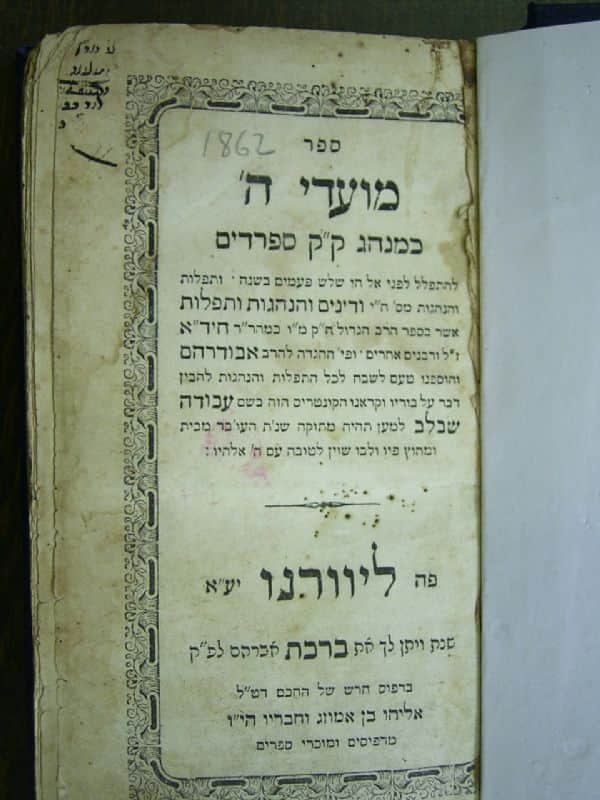 1862
ספר
מועדי ה'
כמנהג ק"ק ספרדים
להתפלל לפני אל חי שלש פעמים בשנה · ותפלות
והנהגות מס' ח"י ודינים והנהגות ותפלות
אשר בספר הרב הגדול ח"ק מ"ו כמהר"ר חיד"א
ז"ל ורבנים אחרים · ופי' ההגדה להרב אבודרהם
והוספנו טעם לשבח לכל התפלות והנהגות להבין
דבר על בוריו וקראנו הקונטריס הזה בשם עבודה
שבלב למען תהיה מתוקה שנ'ת העו'בר מבית
ומחוץ פיו ולבו שוין לטובה עם ה' אלהיו :
פה ליוורנו יע"א
שנת ויתן לך את ברכת אברהם לפ"ק
בדפוס חדש של החכם
אליהו בן אמוזג וחביריו הי"ו
מדפיסים ומוכרי ספרים